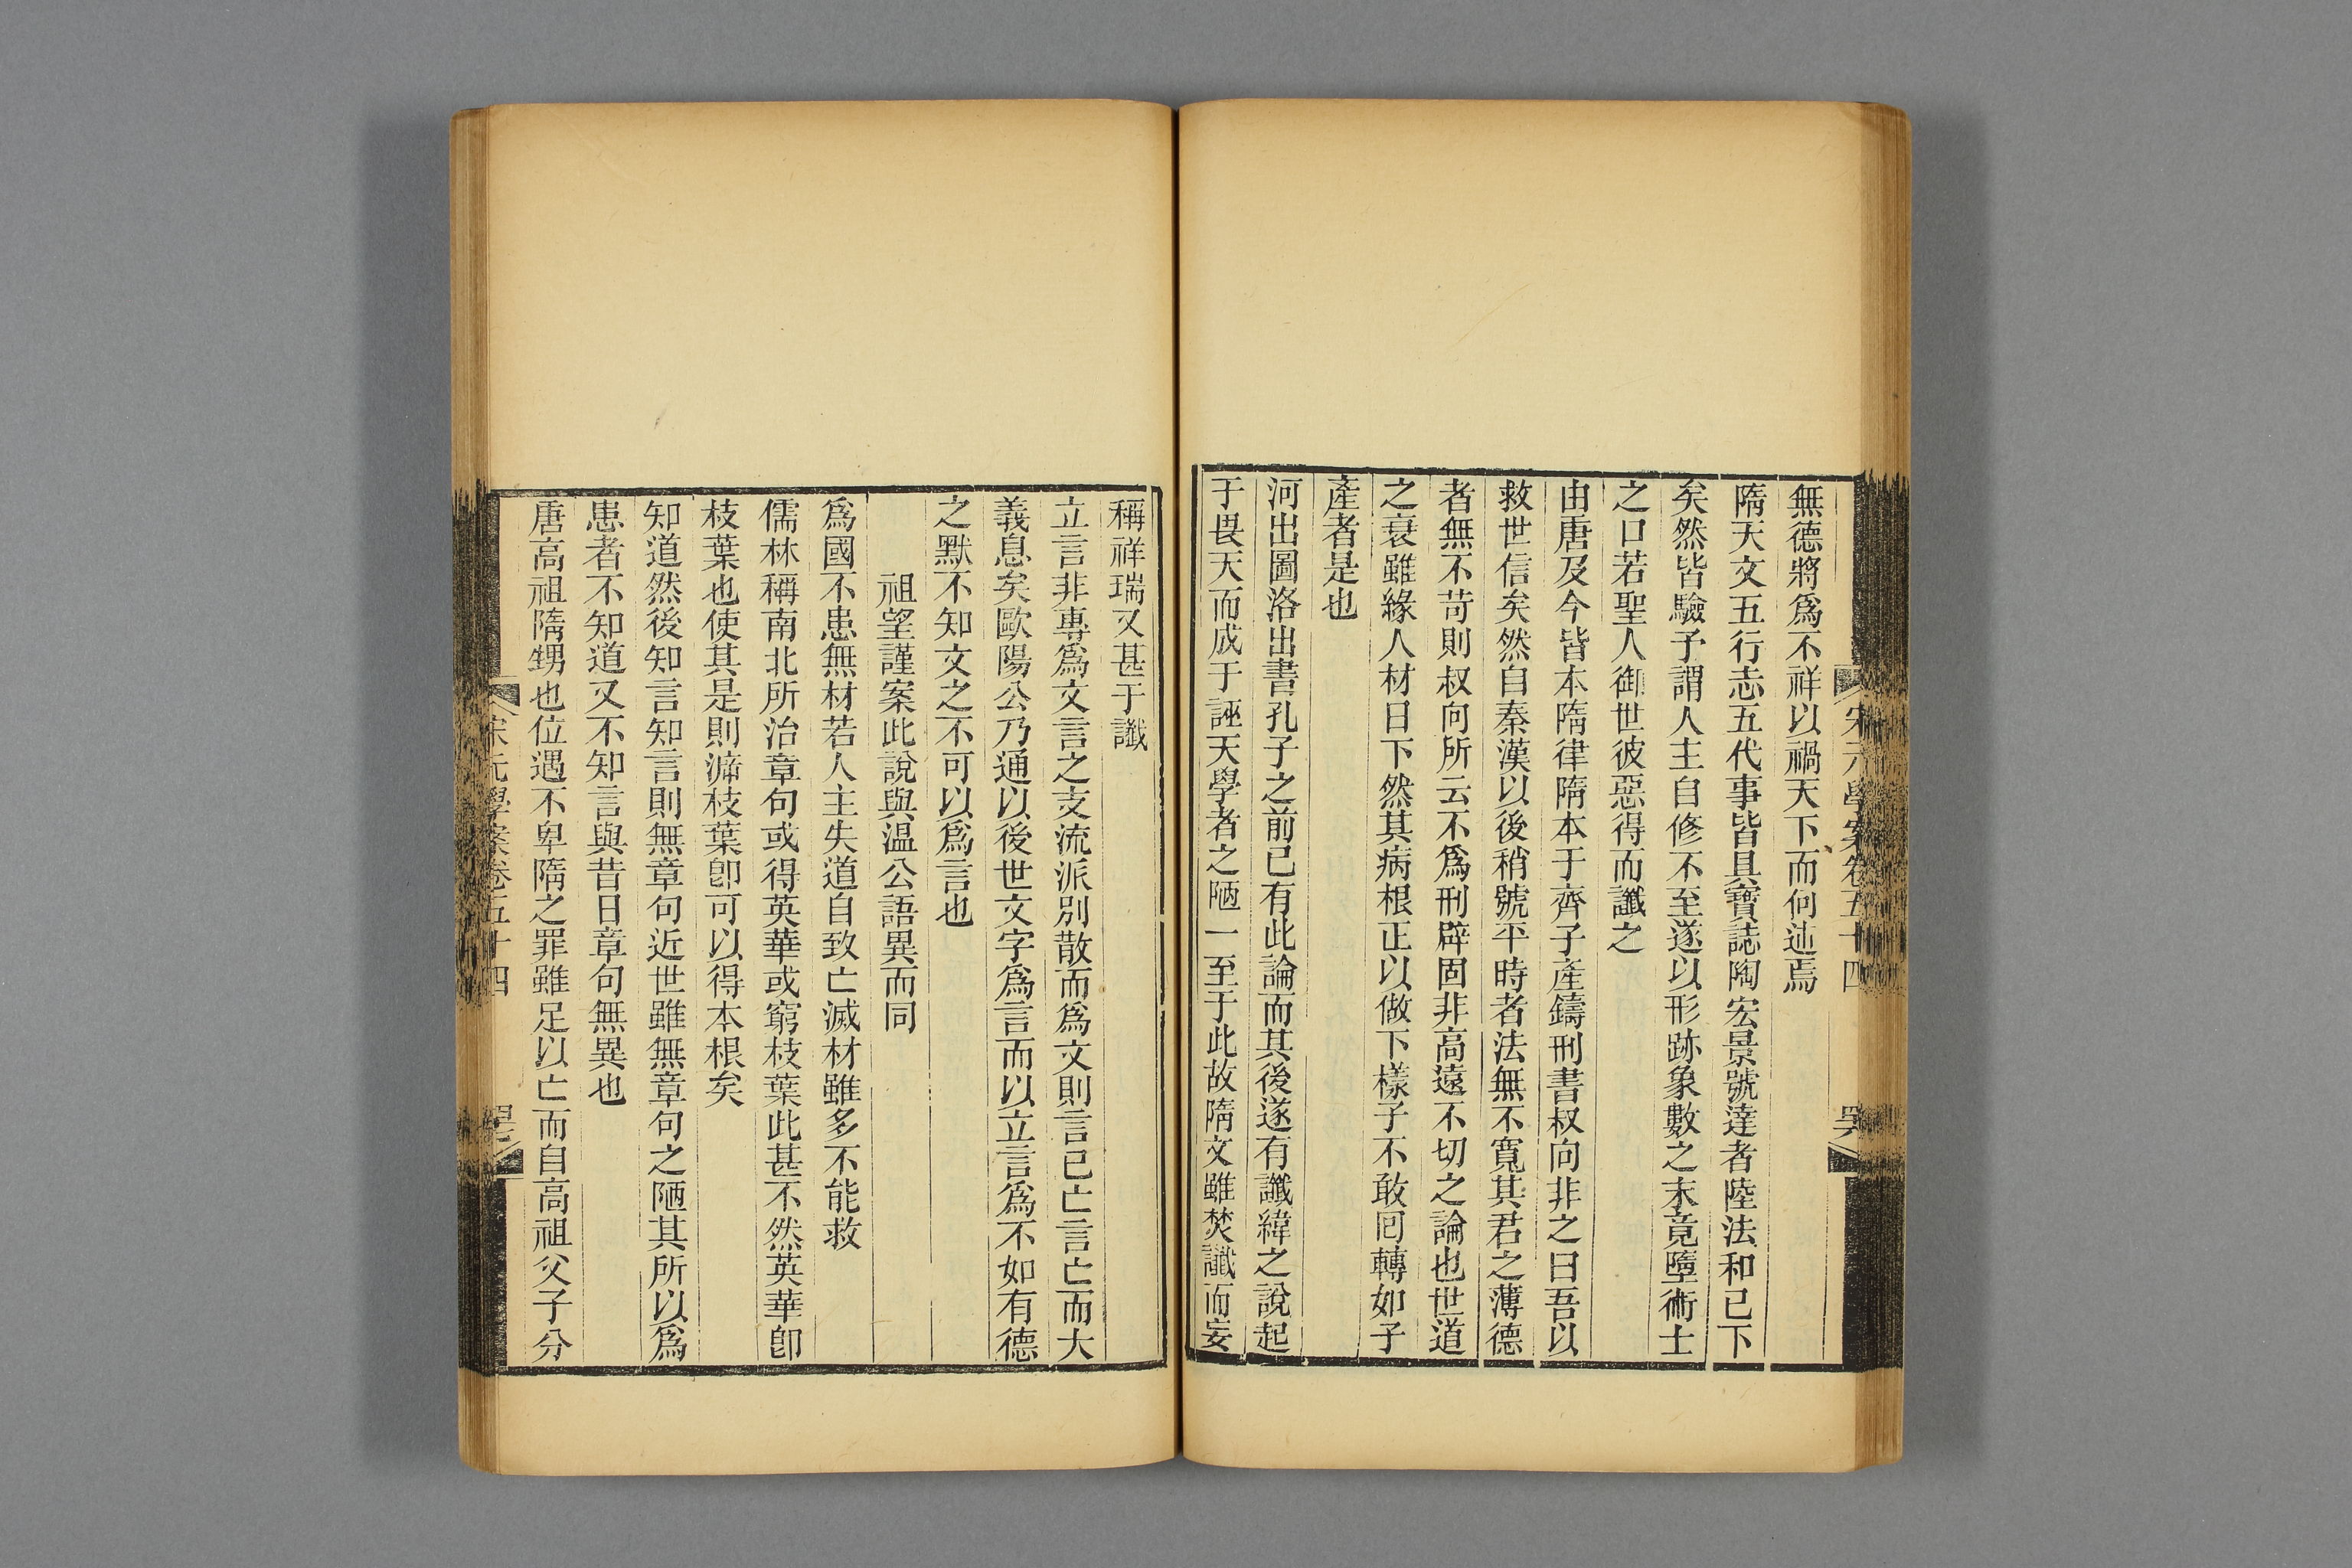 宋元學案卷五十四
無德將爲不祥以禍天下而何述焉
隋天文五行志五代事皆具寶誌陶宏景號達者陸法和已下
矣然皆驗予謂人主自修不至遂以形跡象數之末竟墮術士
之口若聖人御世彼惡得而讖之
由唐及今皆本隋律隋本于齊子產鑄刑書叔向非之曰吾以
救世信矣然自秦漢以後稍號平時者法無不寬其君之薄德
者無不苛則叔向所云不爲刑辟固非高遠不切之論也世道
之衰雖緣人材日下然其病根正以做下樣子不敢囘轉如子
產者是也
河出圖洛出書孔子之前已有此論而其後遂有讖緯之說起
于畏天而成于誣天學者之陋一至于此故隋文雖焚讖而妄
稱祥瑞又甚于讖
立言非專爲文言之支流派別散而爲文則言已亡言亡而大
義息矣歐陽公乃通以後世文字爲言而以立言爲不如有德
之默不知文之不可以爲言也
祖望謹案此說與温公語異而同
爲國不患無材若人主失道自致亡滅材雖多不能救
儒林稱南北所治章句或得英華或窮枝葉此甚不然英華卽
枝葉也使其是則滯枝葉卽可以得本根矣
知道然後知言知言則無章句近世雖無章句之陋其所以爲
患者不知道又不知言與昔日章句無異也
唐高祖隋甥也位遇不卑隋之罪雖足以亡而自高祖父子分
宋元學案卷五十四